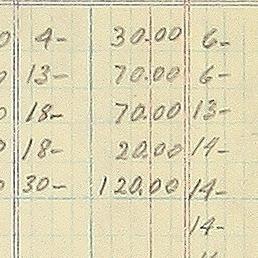 0 4- 30.00 6-
0 13- 70.00 6-
0 18- 70.00 13-
0 18- 20.00 14-
0 30- 120.00 14-
14-